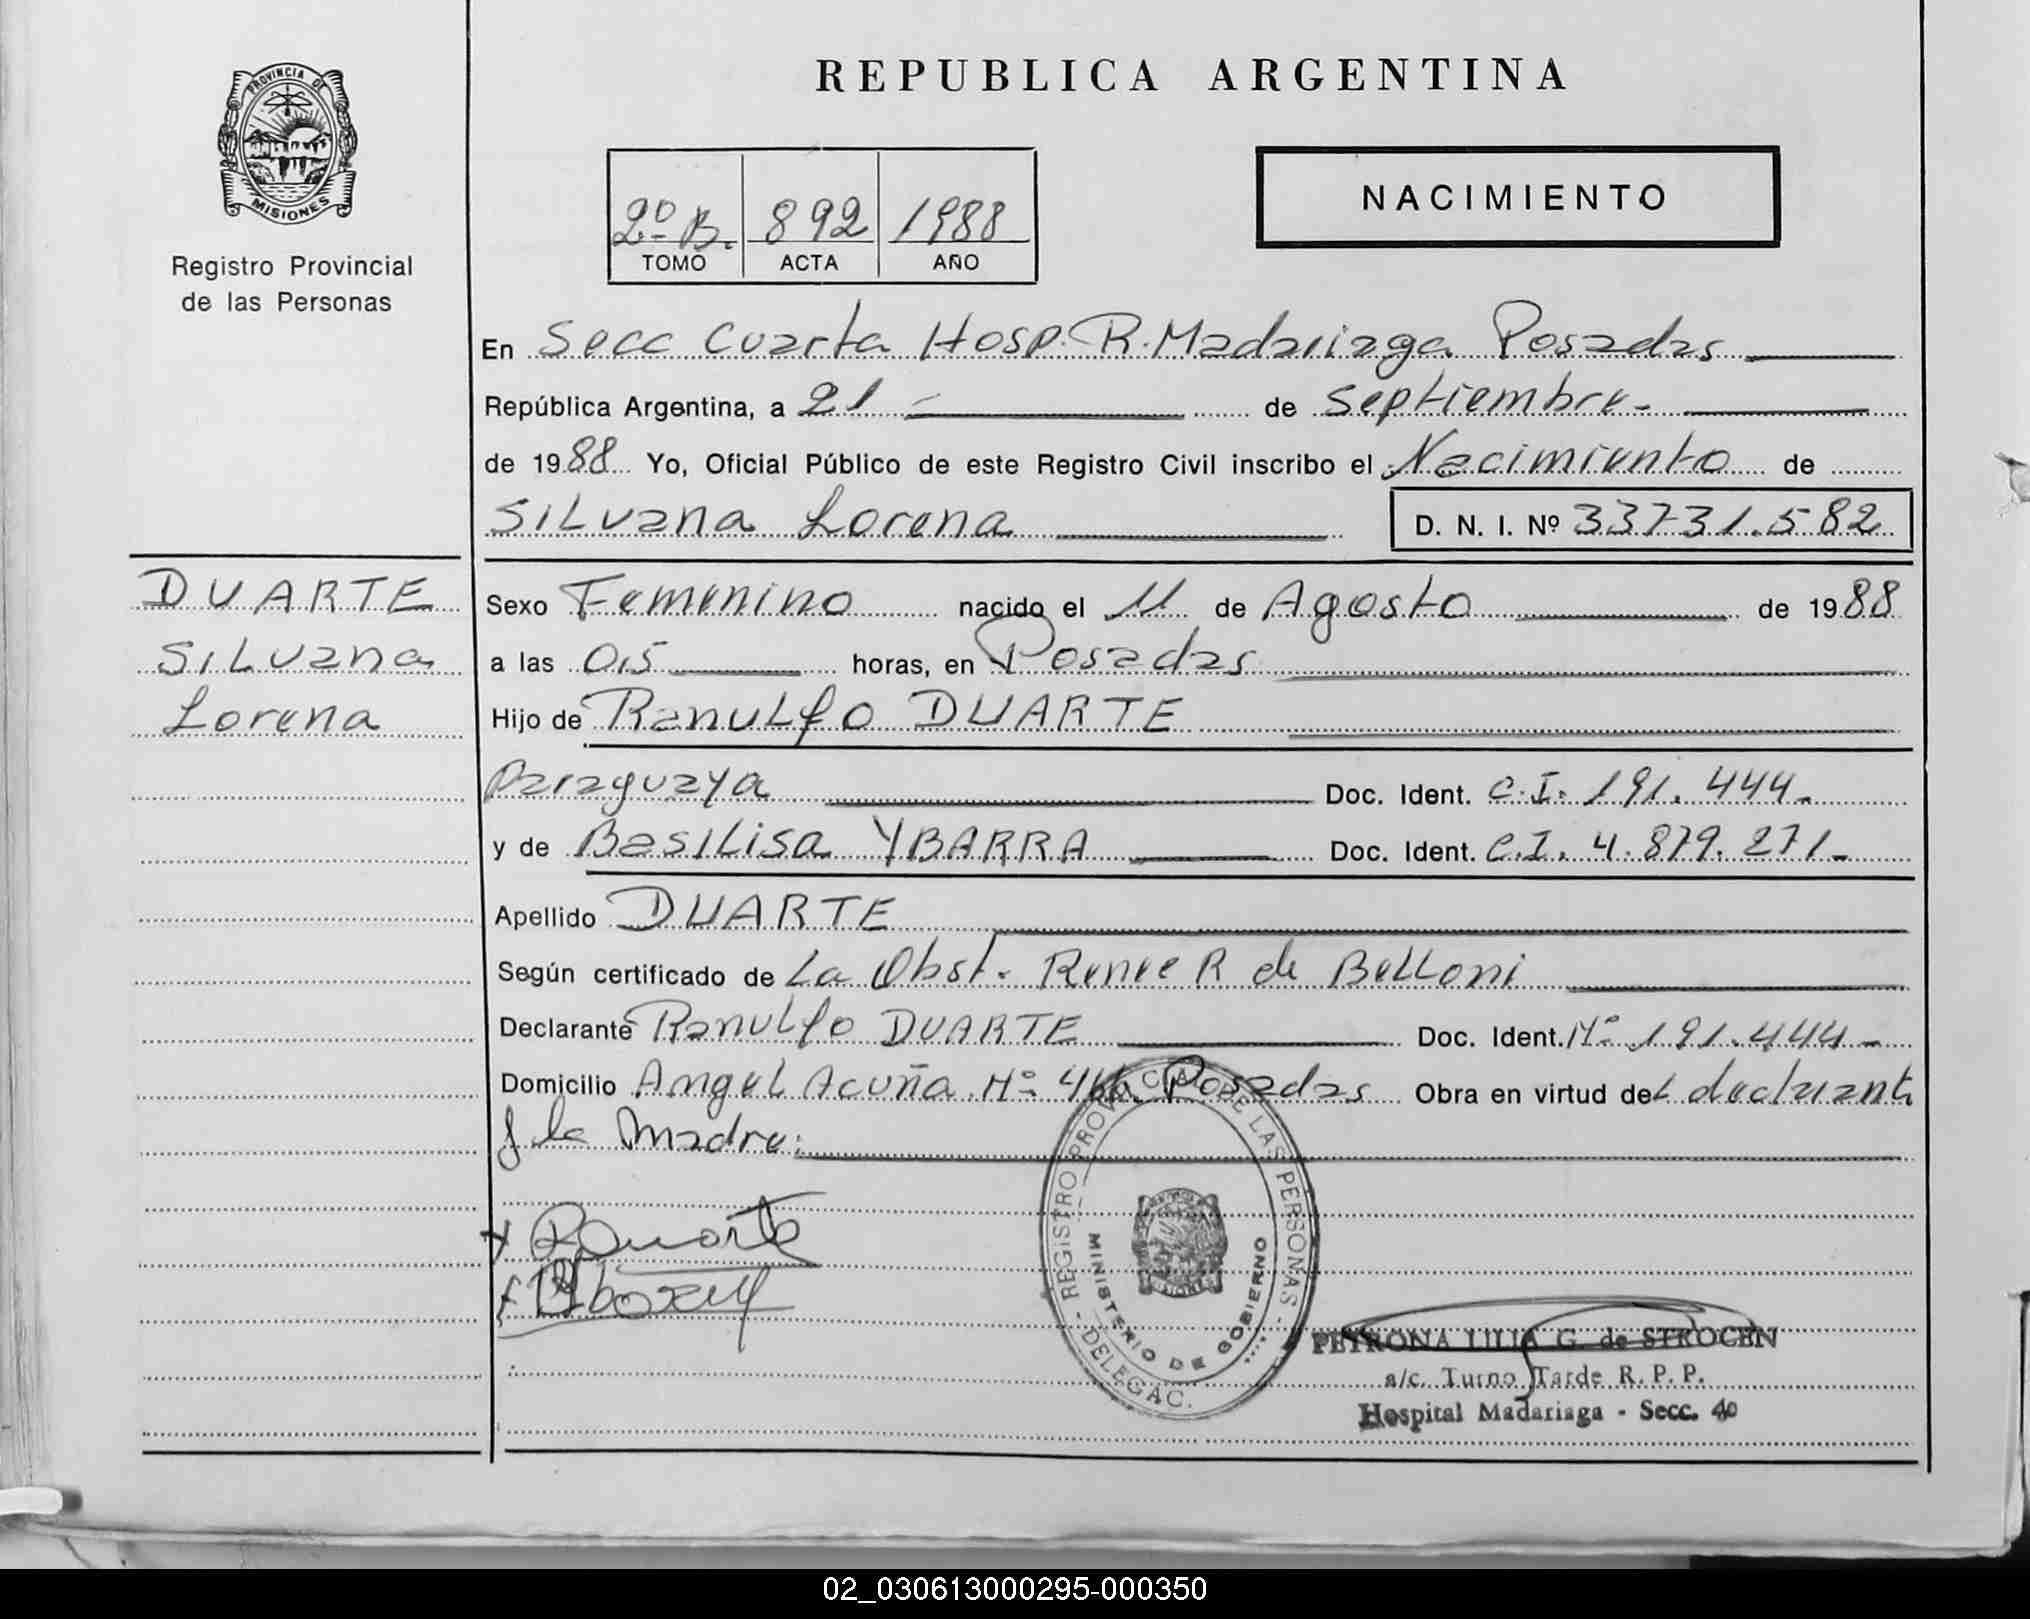 PROVINCIA DE
MISIONES
Registro Provincial
de las Personas
REPUBLICA ARGENTINA
2º B. 892 1988
TOMO ACTA AÑO
NACIMIENTO
En Secc Cuarta Hosp. R. Madariaga Posadas
República Argentina, a 21 de Septiembre.
de 1988 Yo, Oficial Público de este Registro Civil inscribo el Nacimiento de
Silvana Lorena D. N. I. Nº 33731.582
DUARTE
Silvana
Lorena
Sexo Femenino nacido el 11 de Agosto de 1988
a las 05 horas, en Posadas
Hijo de Ranulfo DUARTE
Paraguaya Doc. Ident. C.I. 191.444.
y de Basilisa YBARRA Doc. Ident. C.I. 4.879.271-
Apellido DUARTE
Según certificado de La Obst. Renee R de Belloni
Declarante Ranulfo DUARTE Doc. Ident. Nº 191.444-
Domicilio Angel Acuña Nº Posadas Obra en virtud del declarante
y la Madre.
RDuarte
REGISTRO PROVINCIAL DE LAS PERSONAS - DELEGAC.
MINISTERIO DE GOBIERNO
PETRONA LILIA G. de STROCEN
a/c. Turno Tarde R. P. P.
Hospital Madariaga - Secc. 4º
02_030613000295-000350